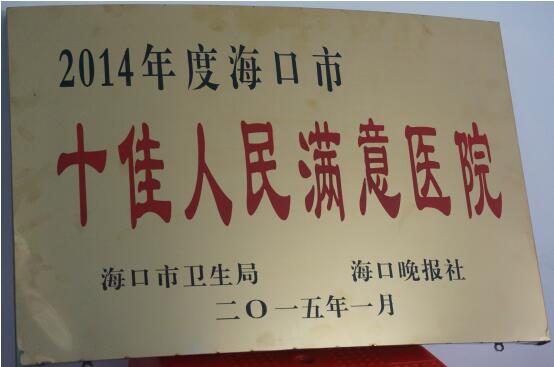 2014年度海口市
十佳人民满意医院
海口市卫生局 海口晚报社
二〇一五年一月